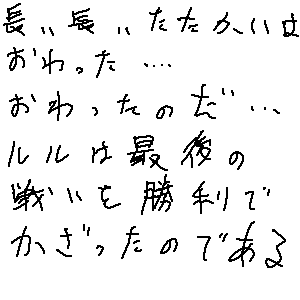 長い長いたたかいは
おわった…
おわったのだ…
ルルは最後の
戦いを勝利で
かざったのである